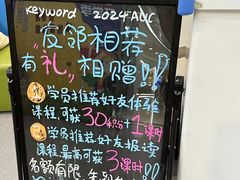 keyword 2024 AUG
友邻相荐
"有礼"相赠!!
学员推荐好友体验
课程,可获30积分+1课时
学员推荐好友报读
课程,最高可获3课时!!
名额有限,